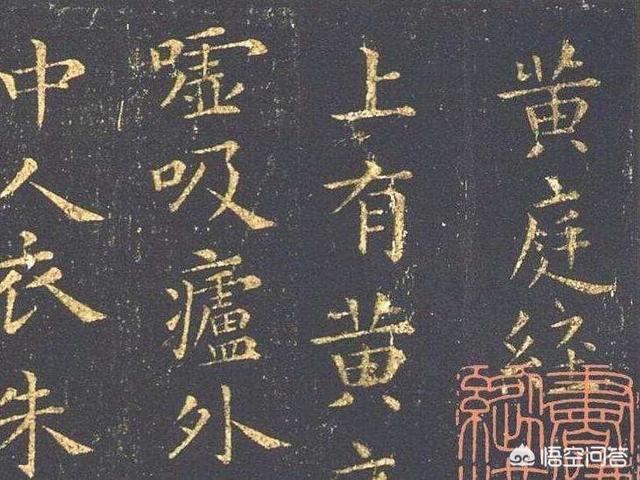 黄庭經
上有黄
嘘吸廬外
中人衣朱
悟空问答